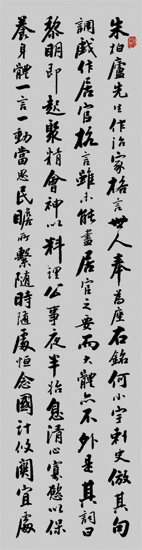 朱柏廬先生作治家格言世人奉為座石銘何小宇刺史倣其句
調戲作居官格言雖未能盡居官之要而大體亦不外是其詞曰
黎明即起聚精會神以料理公事夜半始息清心寡慾以保
養身體一言一動當思民瞻所繫隨時隨處恒念國計攸關宜處